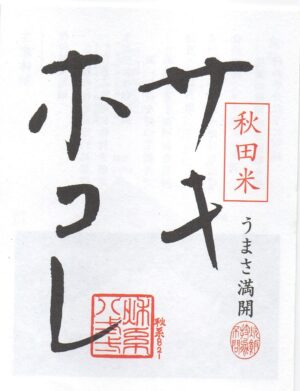 秋田米
うまさ満開
サキ
ホコレ
秋系821